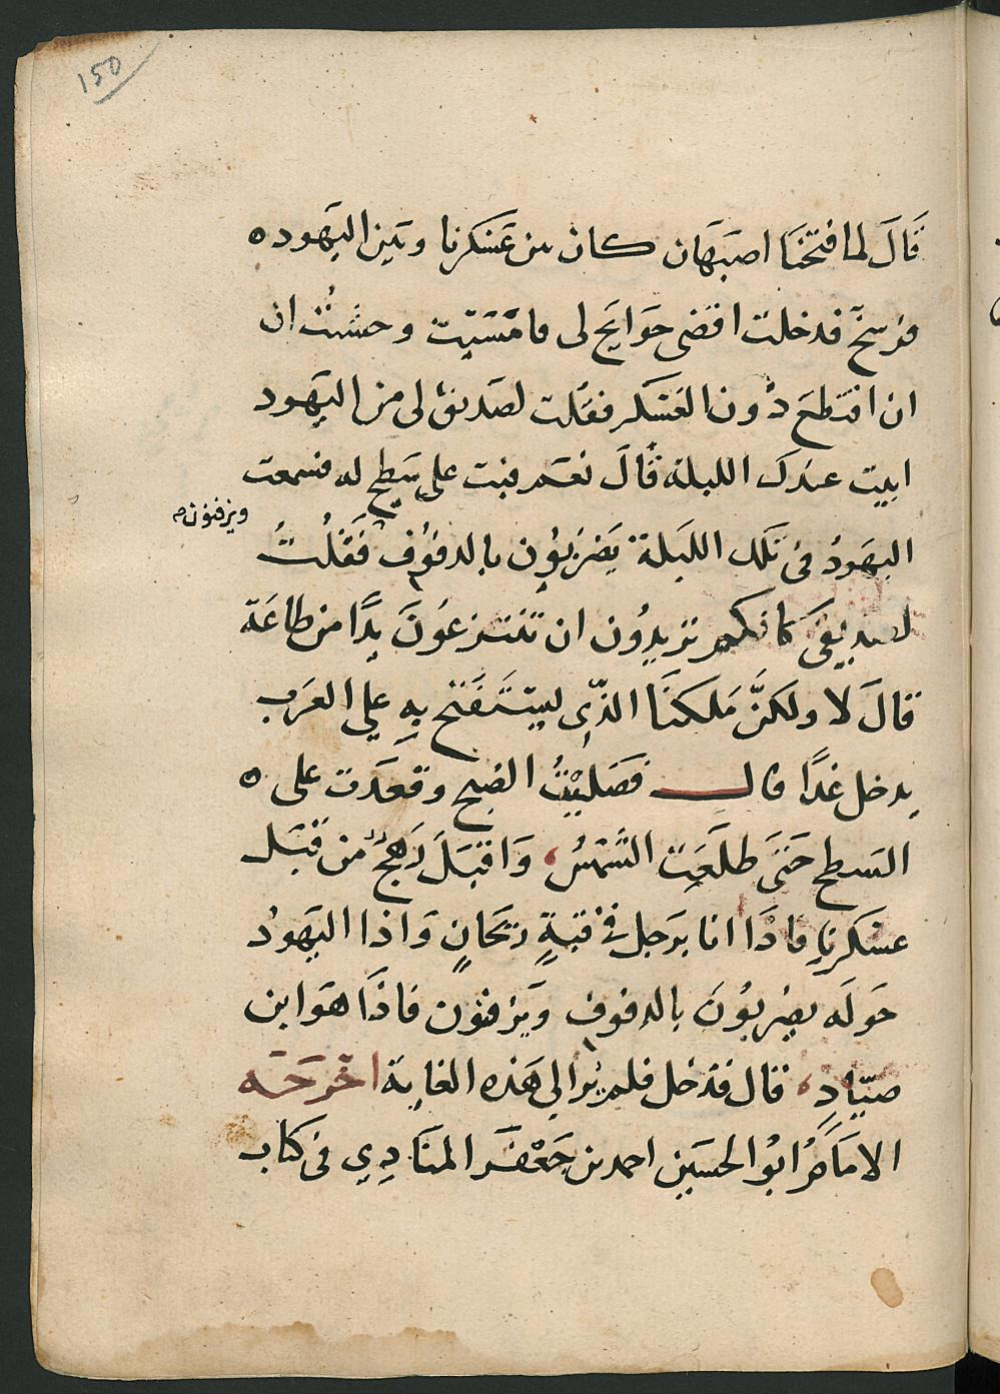 150
قَالَ لما افتتحنَا اصبَهَان كان بين عَسْكرنا وبَين اليَهوده
فرسخَ فدخلت اقضى حَوَايَج لى فامْسَيت وخشيتُ ان
ان اقتطعَ دُون العَسْكر فقلت لصَديق لى من اليَهود
ابيت عندك الليلة قالَ نعَم فبت على سَطح له فسمعت
ويزفنون
اليَهودُ فى تلك الليَلة يَضربُون بالدفوُف فَقلُتُ
لصديقى كانكم تريدُون ان تنتزعُونَ يدًا من طاعَة
قالَ لا ولكنَّ مَلكنَا الذّى ليسْتَفَتح بِهِ على العَرَب
يدخل غدًا قال فصَليْتُ الصُبح وقعَدَت على ه
السَطح حَتىَ طلعَت الشَمْسُ، وَاقبَلَ رَهَجُ من قبَل
عسْكرنا فاذَا انا برَجل فى قبةٍ ريحَانٍ وَاذا اليَهوُد
حَولَه يضربُونَ بالدفوف وَيَزفنون فاذَا هَوَ ابن
صيّادٍ، قال فدَخل فلم يُر الى هَذه الغاية اخرَجَه
الامَامُ ابُو الحسَين احمد بن جَعْفَر المنَادِي فى كتاب